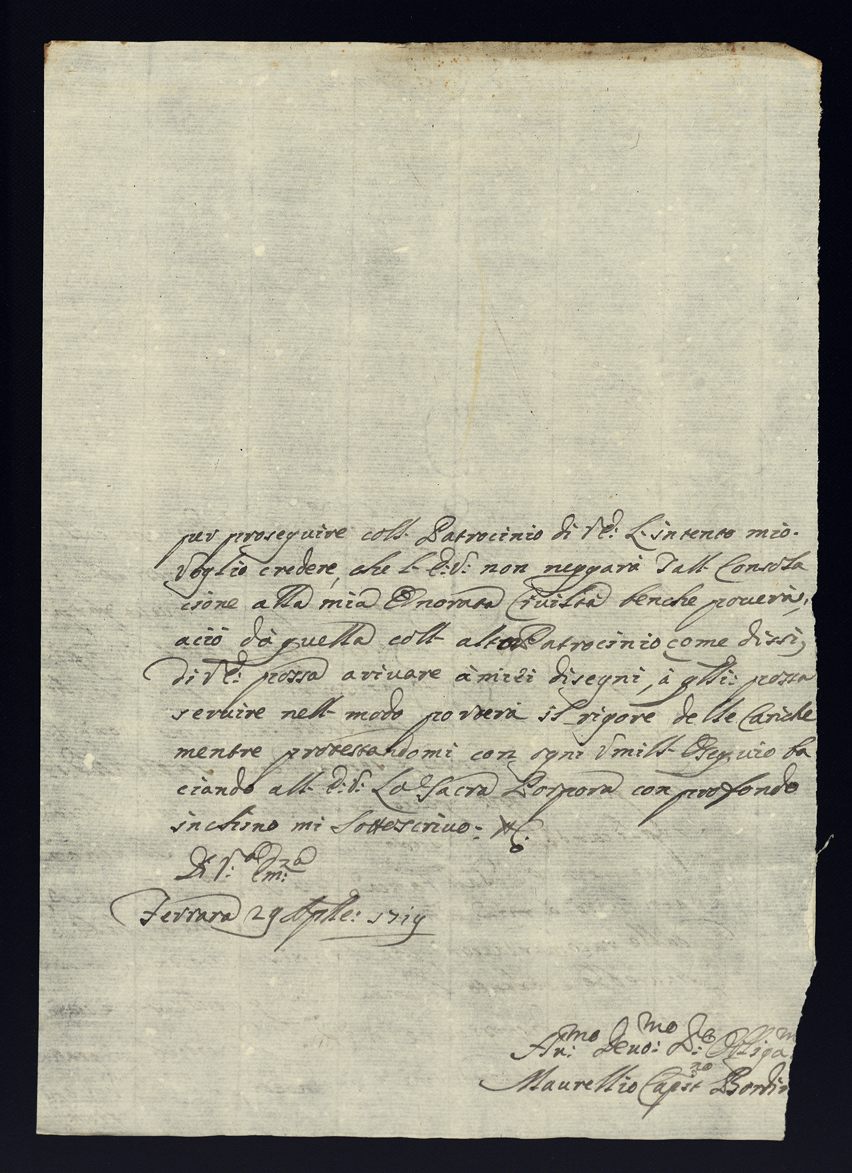 per proseguire coll. Patrocinio di V.E: L'intento mio.
Voglio credere, che l'E:V: non neggarà Tall. Consola
cione alla mia Onorata Civiltà benche povera,
aciò da quella coll. alto Patrocinio come dissi,
di V.E: possa arivare à miei disegni, à gl'li: possa
servire nell. modo porterà il rigore delle Cariche
mentre protestandomi con ogni Umill. Osequio ba
ciando all. E:V: La Sacra Porpora con profondo
inchino mi sottoscrivo:
Di V:a Em:za
Ferrara 29 Aplle: 1719
Devo:mo Obliga
Maurellio Bordin